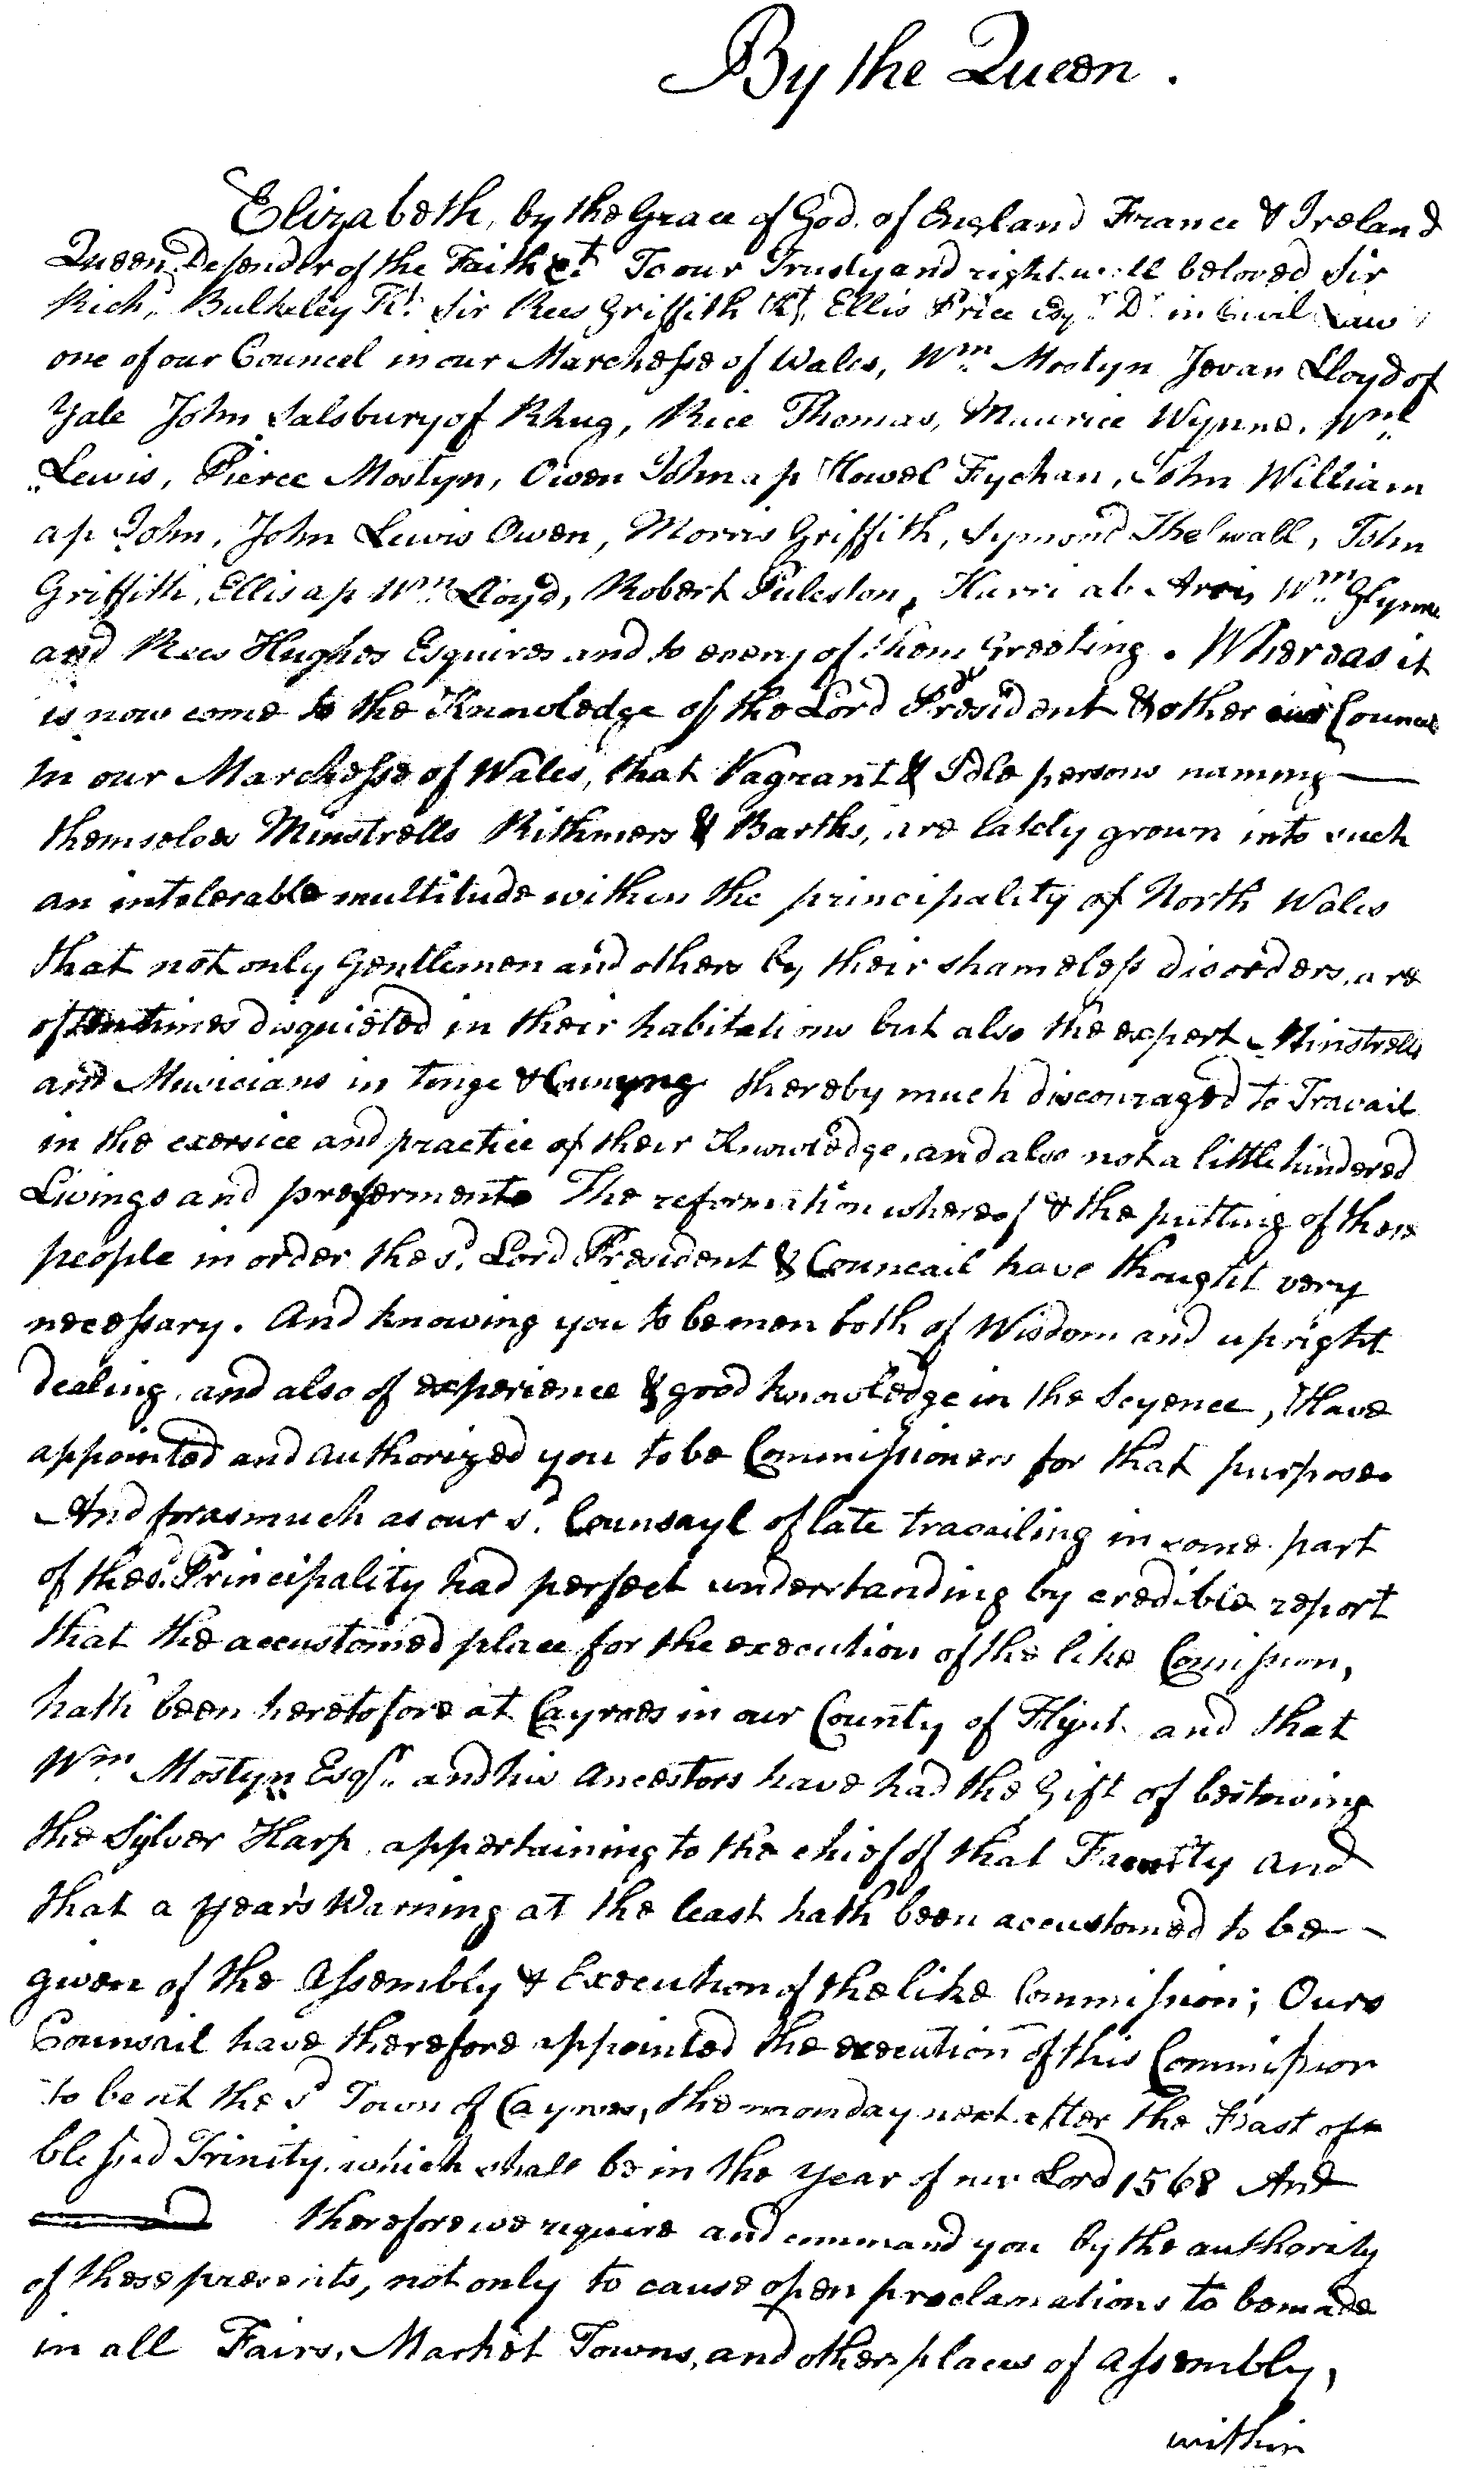 By the Queen.
Elizabeth, by the Grace of God. of England France & Ireland
Queen Defender of the Faith &ct. To our Trusty and right well beloved Sir
Richd. Bulkeley Kt. Sir Rees Griffith Kt. Ellis Price Esqr. Dr. in Civil Law
one of our Councel in our Marchesse of Wales, Wm. Mostyn Jevan Lloyd of
Yale John Salsbury of Rhug, Rice Thomas, Maurice Wynne, Wm.
Lewis, Pierce Mostyn, Owen John ap Howel Fychan, John William
ap John, John Lewis Owen, Morris Griffith, Symond Thelwall, John
Griffith, Ellis ap Wm. Lloyd, Robert Puleston, Harri ab Wm. Glynne
and Rees Hughes Esquires and to every of them Greeting. Whereas it
is now come to the Knowledge of the Lord President & other our Council
in our Marchesse of Wales, that Vagrant & Idle persons naming
themselves Minstrells Rithmers & Barths, are lately grown into such
an intolerable multitude within the principality of North Wales
that not only Gentlemen and others by their shameless disorders, are
oftentimes disquieted in their habitations but also the expert Minstrells
and Musicians in tonge & Cunyng thereby much discouraged to Travail
in the exersice and practice of their Knowledge, and also not a little hindered
Livings and preferments The reformation whereof & the putting of these
people in order the sd. Lord President & Councail have thought very
necessary. And knowing you to be men both of Wisdom and upright
dealing, and also of experience & good knowledge in the Scyence, Have
appointed and authorized you to be Commissioners for that purpose.
And forasmuch as our sd. Counsayl of late travailing in some part
of the sd. Principality had perfect understanding by credible report
that the accustomed place for the execution of the like Comission,
hath been heretofore at Cayroes in our County of Flynt and that
Wm. Mostyn Esqr. and his Ancestors have had the Gift of bestowing
the Sylver Harp appertaining to the chief of that Facultty and
that a year's Warning at the least hath been accustomed to be
given of the Assembly & Execution of the like Commission; Ours
Counsail have therefore appointed the execution of this Commission
to be at the sd Town of Cayroes, the monday next after the Feast of
blessed Trinity, which shall be in the year of our Lord 1568 And
therefore we require and command you by the authority
of these presents, not only to cause open proclamations to be made
in all Fairs, Market Towns, and other places of Assembly,
within